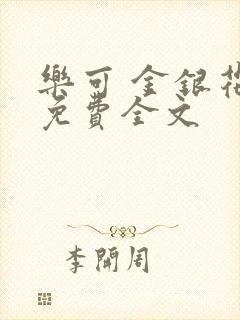 樂可 金銀花
免費全文
李開周